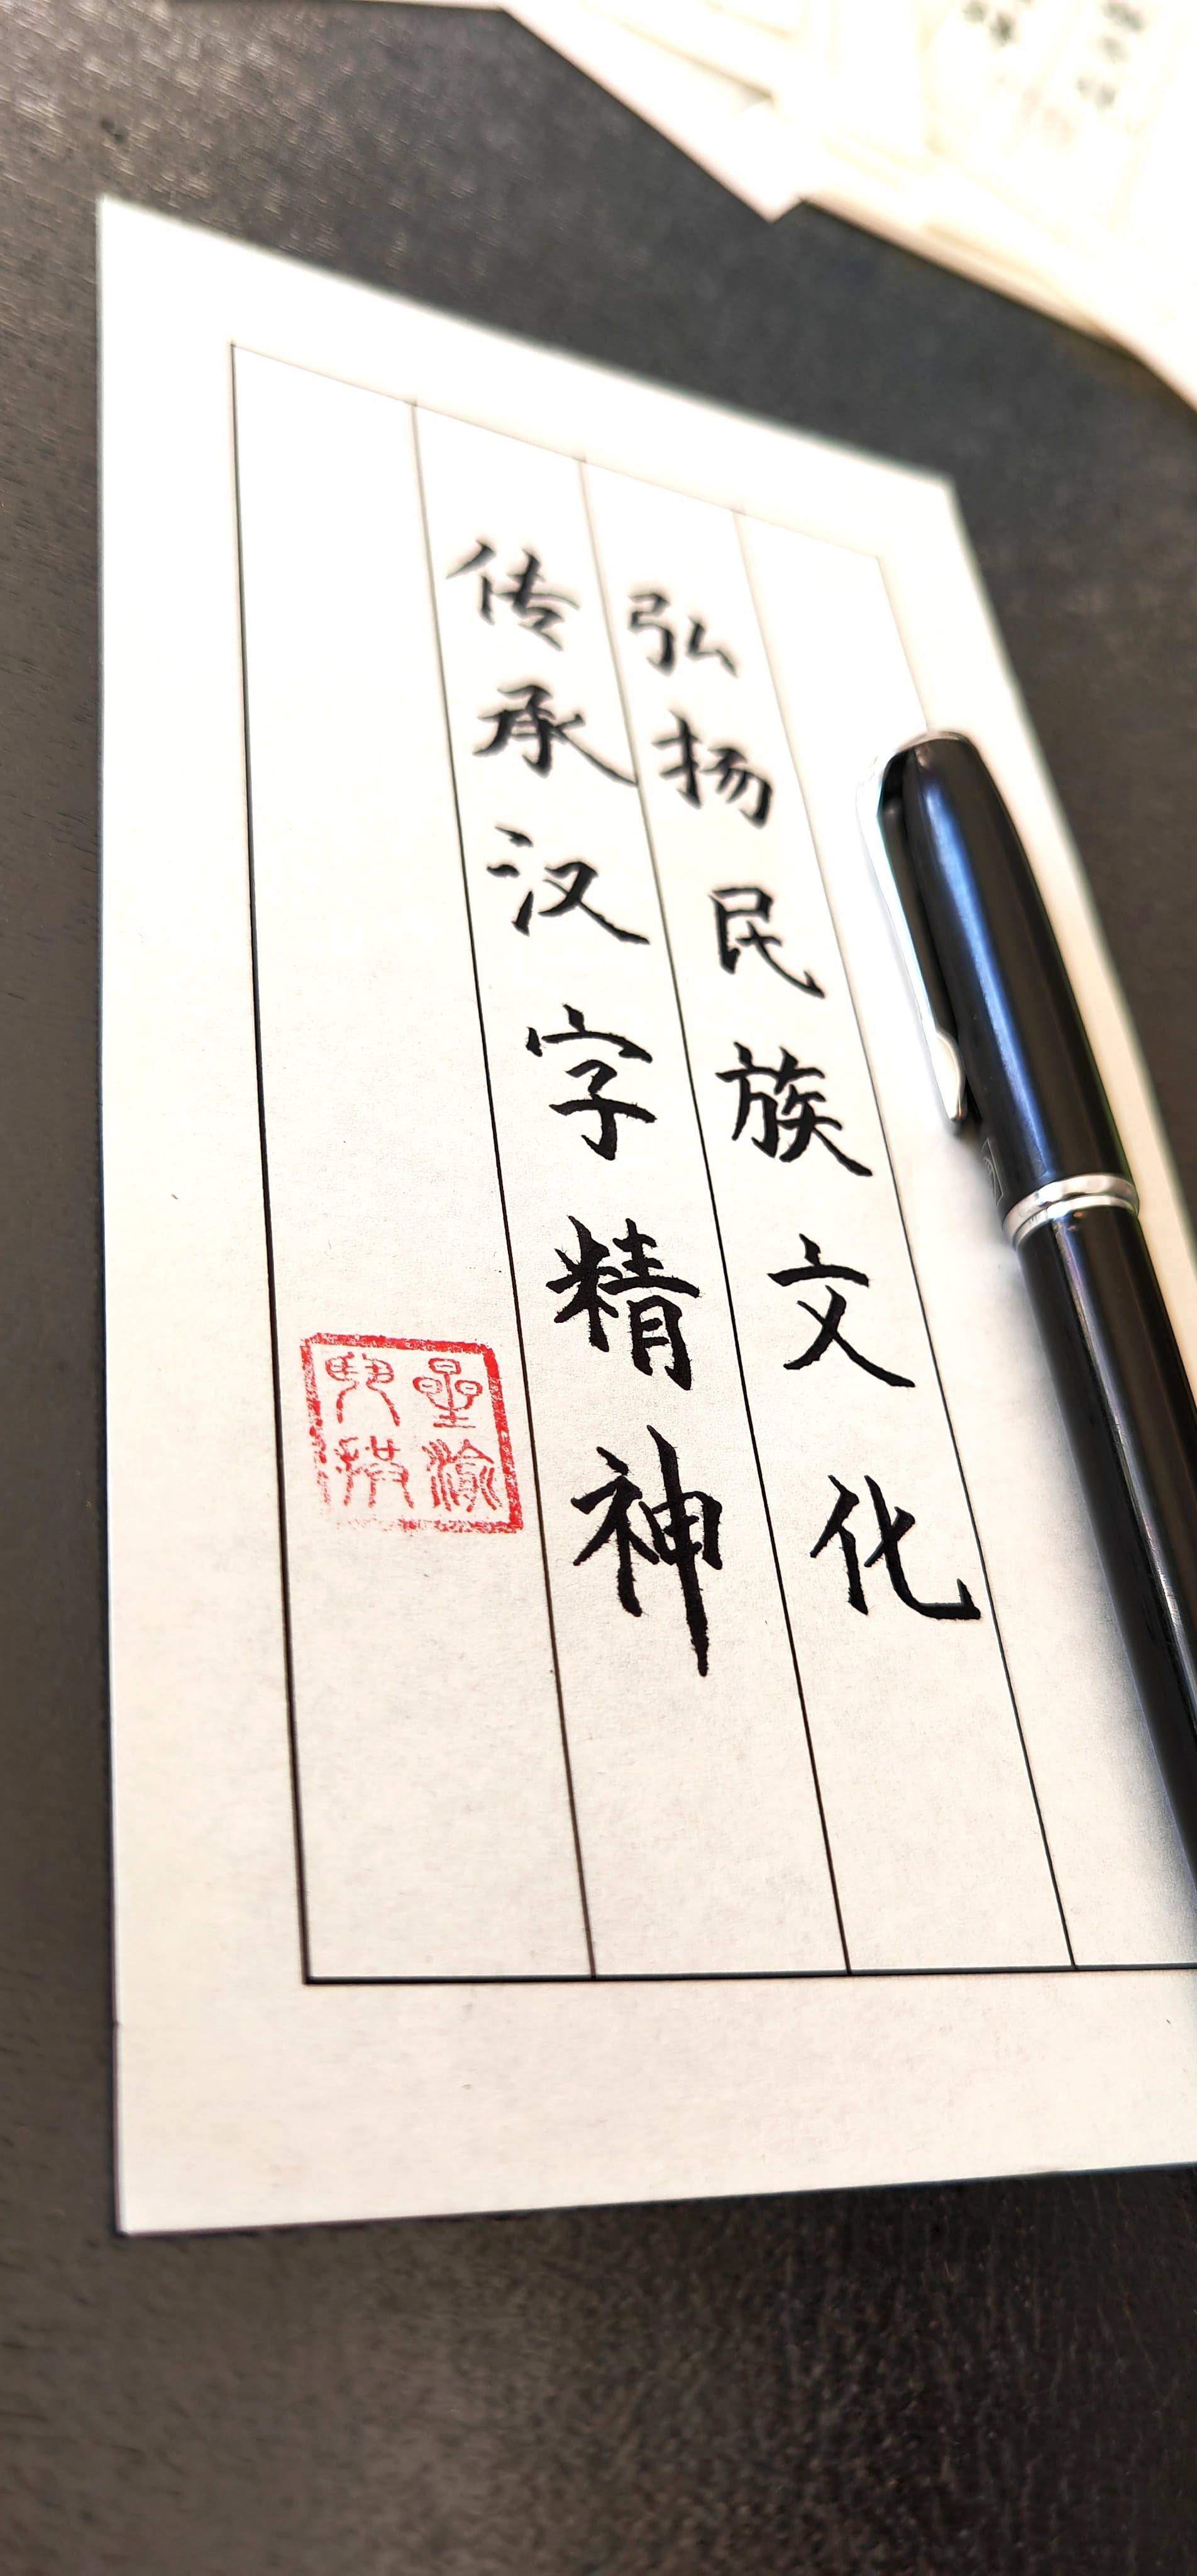 弘扬民族文化
传承汉字精神